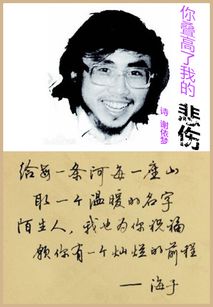 你叠高了我的
悲伤
诗 谢依梦
给每一条河每一座山
取一个温暖的名字
陌生人，我也为你祝福
愿你有一个灿烂的前程
——海子